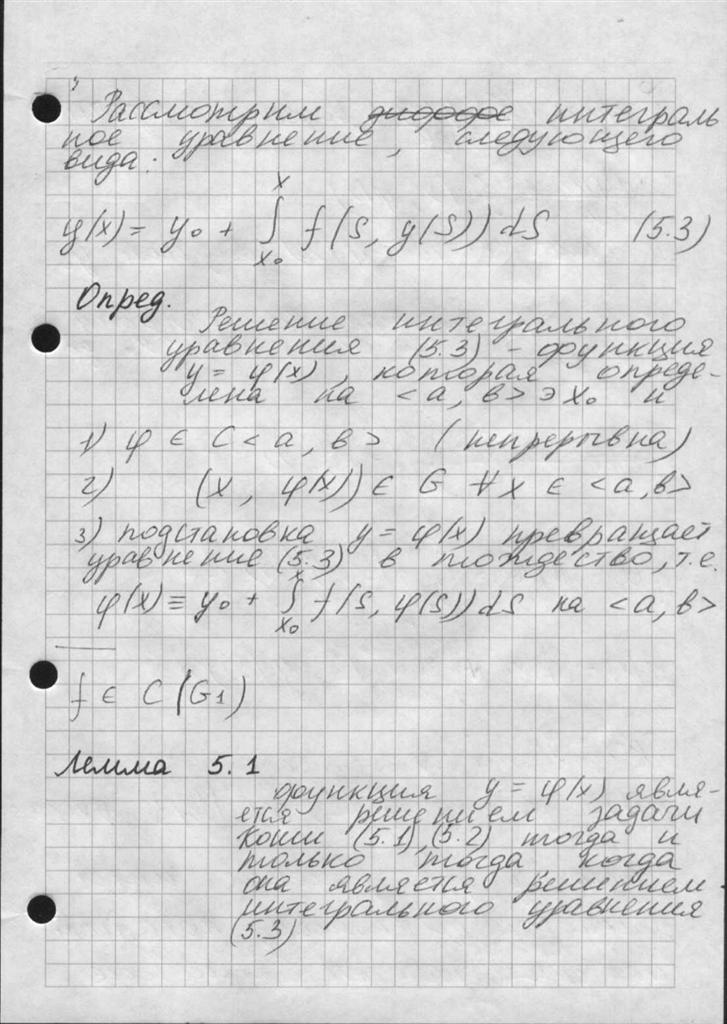 Рассмотрим диффе интеграль
ное уравнение, следующего
вида:
y(x) = y₀ + ∫ₓ₀ˣ f(s, y(s)) ds (5.3)
Опред.
Решение интегрального
уравнения (5.3) - функция
y = φ(x), которая опреде-
лена на <a, b> ∋ x₀ и
1) φ ∈ C <a, b> (непрерывна)
2) (x, φ(x)) ∈ G ∀ x ∈ <a, b>
3) подстановка y = φ(x) превращает
уравнение (5.3) в тождество, т.е.
φ(x) ≡ y₀ + ∫ₓ₀ˣ f(s, φ(s)) ds на <a, b>
f ∈ C (G₁)
Лемма 5.1
функция y = φ(x) явля-
ется решением задачи
Коши (5.1), (5.2) тогда и
только тогда когда
она является решением
интегрального уравнения
(5.3)